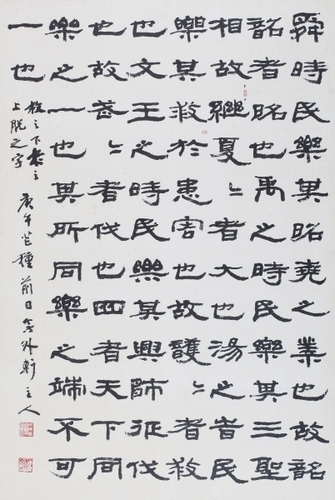 舜時民樂其昭堯之業也故韶
韶者昭也禹之時民樂其三聖
相故繼夏〻者大也湯之者民
樂其救於患害也故頀〻者救
也文王之時民樂其興師征伐
也故武〻者伐也四者天下同
樂之一也其所同樂之端不可
一也
上脱之字
庚午芒種前日外軒主人